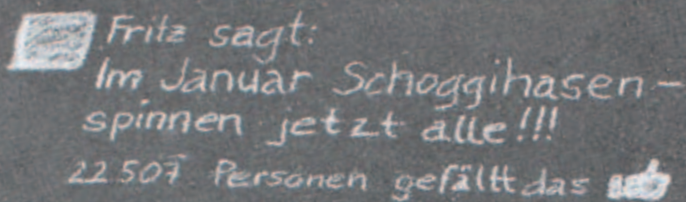 Fritz sagt:
Im Januar Schoggihasen-
spinnen jetzt alle!!!
22507 Personen gefällt das